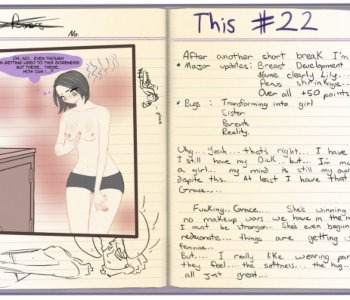 Rivers
No.
OH...NO...EVEN THOUGH
I'M GETTING USED TO THIS SORENESS
BUT THESE... THESE...
HOW CAN I...?
This #22
After another short break I'm
• Major updates: Breast Development
Name clearly Lily...
Penus shrinkage...
Over all +50 points
• Bugs : Transforming into girl
Sister
Parents
Reality.
Ugg...Yeah....that's right.. I have
I still have my Dick.. but... I'm
a girl... my mind is still my
dispite this.. At least I have that
Grace.....
Fucking..Grace...... She's winning
no makeup wars we have in the
I must be stronger... She's even begun
redecorate.... things are getting
feminine...
But.... I really like wearing
they feel... the softness... the hug..
all just great....